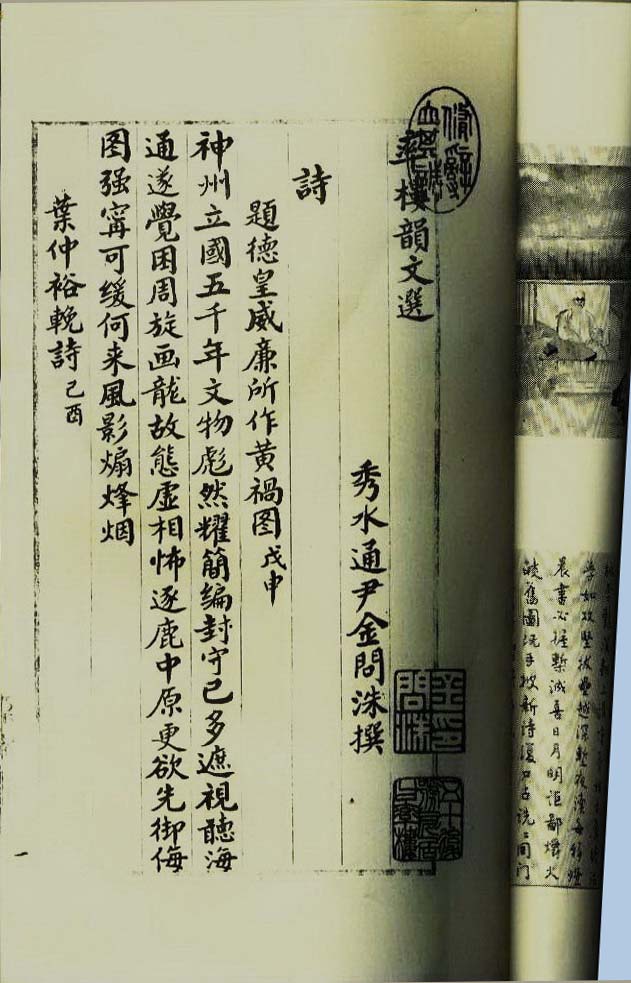 晨書必握槧減喜日月明詎鄙爝火
樓韻文選
秀水通尹金問洙撰
詩
題德皇威廉所作黄禍图戊申
神州立國五千年文物彪然耀簡編封守已多遮視聽海
通遂覺困周旋画龍故態虚相怖逐鹿中原更欲先御侮
图强寗可缓何来風影煽烽烟
葉仲裕輓詩己酉